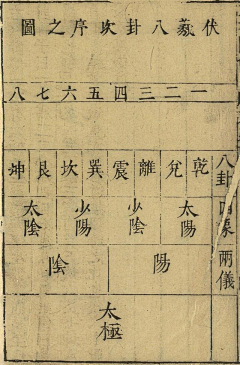 伏羲八卦次序之圖
一二三四五六七八
八卦 四象 兩儀
乾兌離震巽坎艮坤
太陽 少陰 少陽 太陰
陽 陰
太極